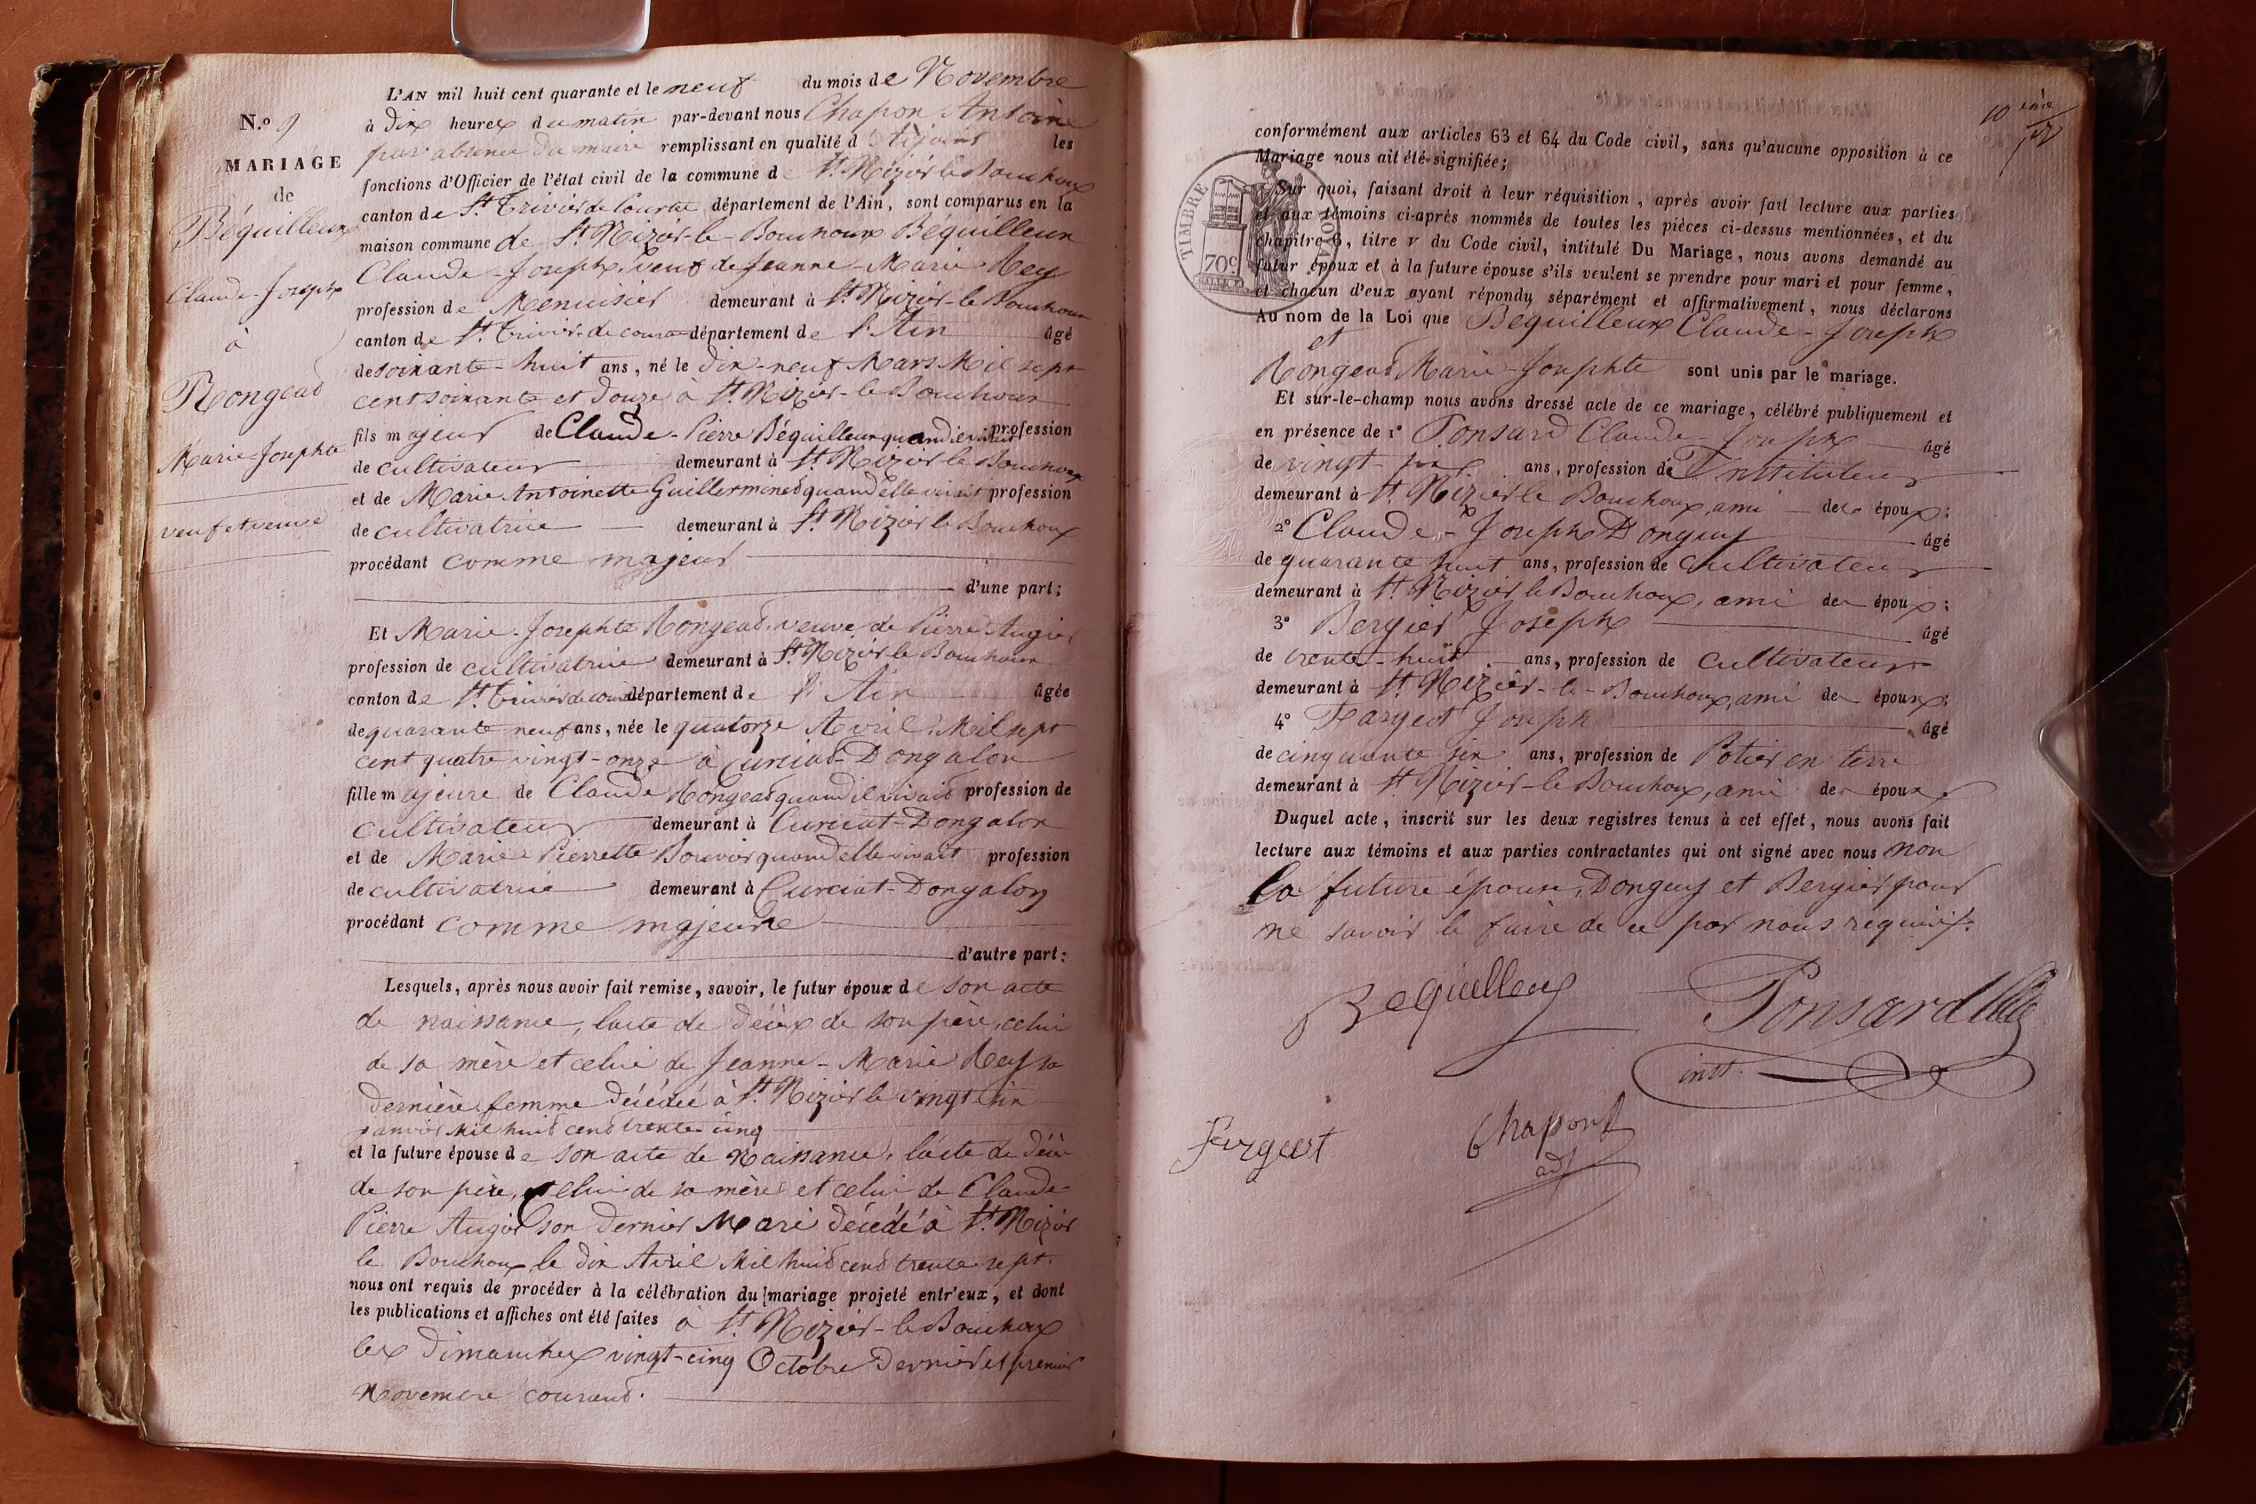 N.º 9
MARIAGE
de
Béquilleux
Claude-Joseph
à
Rongead
Marie-Josephte
veuf et veuve
L'AN mil huit cent quarante et le neuf du mois de Novembre
à dix heures du matin par-devant nous Chapon Antoine
par absence du maire remplissant en qualité d'Adjoint les
fonctions d'Officier de l'état civil de la commune de St. Nizier le Bouchoux
canton de St. Trivier de Courtes département de l'Ain, sont comparus en la
maison commune de St. Nizier-le-Bouchoux Béquilleux
Claude-Joseph, veuf de Jeanne-Marie Rey
profession de Menuisier demeurant à St. Nizier-le-Bouchoux
canton de St. Trivier-de-cour département de l'Ain âgé
de soixante-huit ans, né le dix-neuf Mars Mil sept
cent soixante et douze à St. Nizier-le-Bouchoux
fils majeur de Claude-Pierre Béquilleux quand il vivait profession
de cultivateur demeurant à St. Nizier le Bouchoux
et de Marie Antoinette Guillerminet quand elle vivait profession
de cultivatrice demeurant à St. Nizier le Bouchoux
procédant comme majeur
d'une part;
Et Marie-Josephte Rongead veuve de Pierre Augier
profession de cultivatrice demeurant à St. Nizier le Bouchoux
canton de St. Trivier de cour département de l'Ain âgée
de quarante neuf ans, née le quatorze Avril Mil sept
cent quatre vingt-onze à Curciat-Dongalon
fille majeure de Claude Rongead quand il vivait profession de
cultivateur demeurant à Curciat-Dongalon
et de Marie Pierrette Bouvier quand elle vivait profession
de cultivatrice demeurant à Curciat-Dongalon
procédant comme majeure
d'autre part:
Lesquels, après nous avoir fait remise, savoir, le futur époux de son acte
de naissance, l'acte de décès de son père, celui
de sa mère et celui de Jeanne-Marie Rey sa
dernière femme décédée à St. Nizier le vingt six
janvier Mil huit cent trente cinq
et la future épouse de son acte de Naissance, l'acte de décès
de son père, celui de sa mère et celui de Claude
Pierre Augier son dernier Mari décédé à St. Nizier
le Bouchoux le dix Avril Mil huit cent trente sept.
nous ont requis de procéder à la célébration du mariage projeté entr'eux, et dont
les publications et affiches ont été faites à St. Nizier-le Bouchoux
les dimanches vingt-cinq Octobre dernier et premier
Novembre courant.
10 ième
conformément aux articles 63 et 64 du Code civil, sans qu'aucune opposition à ce
Mariage nous ait été signifiée;
TIMBRE ROYAL
70c
Sur quoi, faisant droit à leur réquisition, après avoir fait lecture aux parties
et aux témoins ci-après nommés de toutes les pièces ci-dessus mentionnées, et du
chapitre 6, titre v du Code civil, intitulé Du Mariage, nous avons demandé au
futur époux et à la future épouse s'ils veulent se prendre pour mari et pour femme,
et chacun d'eux ayant répondu séparément et affirmativement, nous déclarons
Au nom de la Loi que Béquilleux Claude-Joseph
et
Rongead Marie-Josephte sont unis par le mariage.
Et sur-le-champ nous avons dressé acte de ce mariage, célébré publiquement et
en présence de 1° Ponsard Claude-Joseph âgé
de vingt-six ans, profession de Instituteur
demeurant à St. Nizier le Bouchoux, ami des époux;
2° Claude-Joseph Donguy âgé
de quarante huit ans, profession de cultivateur
demeurant à St. Nizier le Bouchoux, ami des époux;
3° Bergier Joseph âgé
de trente-huit ans, profession de cultivateur
demeurant à St. Nizier-le-Bouchoux, ami des époux;
4° Fargeot Joseph âgé
de cinquante six ans, profession de Potier en terre
demeurant à St. Nizier-le Bouchoux, ami des époux
Duquel acte, inscrit sur les deux registres tenus à cet effet, nous avons fait
lecture aux témoins et aux parties contractantes qui ont signé avec nous non
la future épouse, Donguy et Bergier pour
ne savoir le faire de ce par nous requis.
Bequilleux
Ponsard
inst.
Fargeot
Chapon
adj